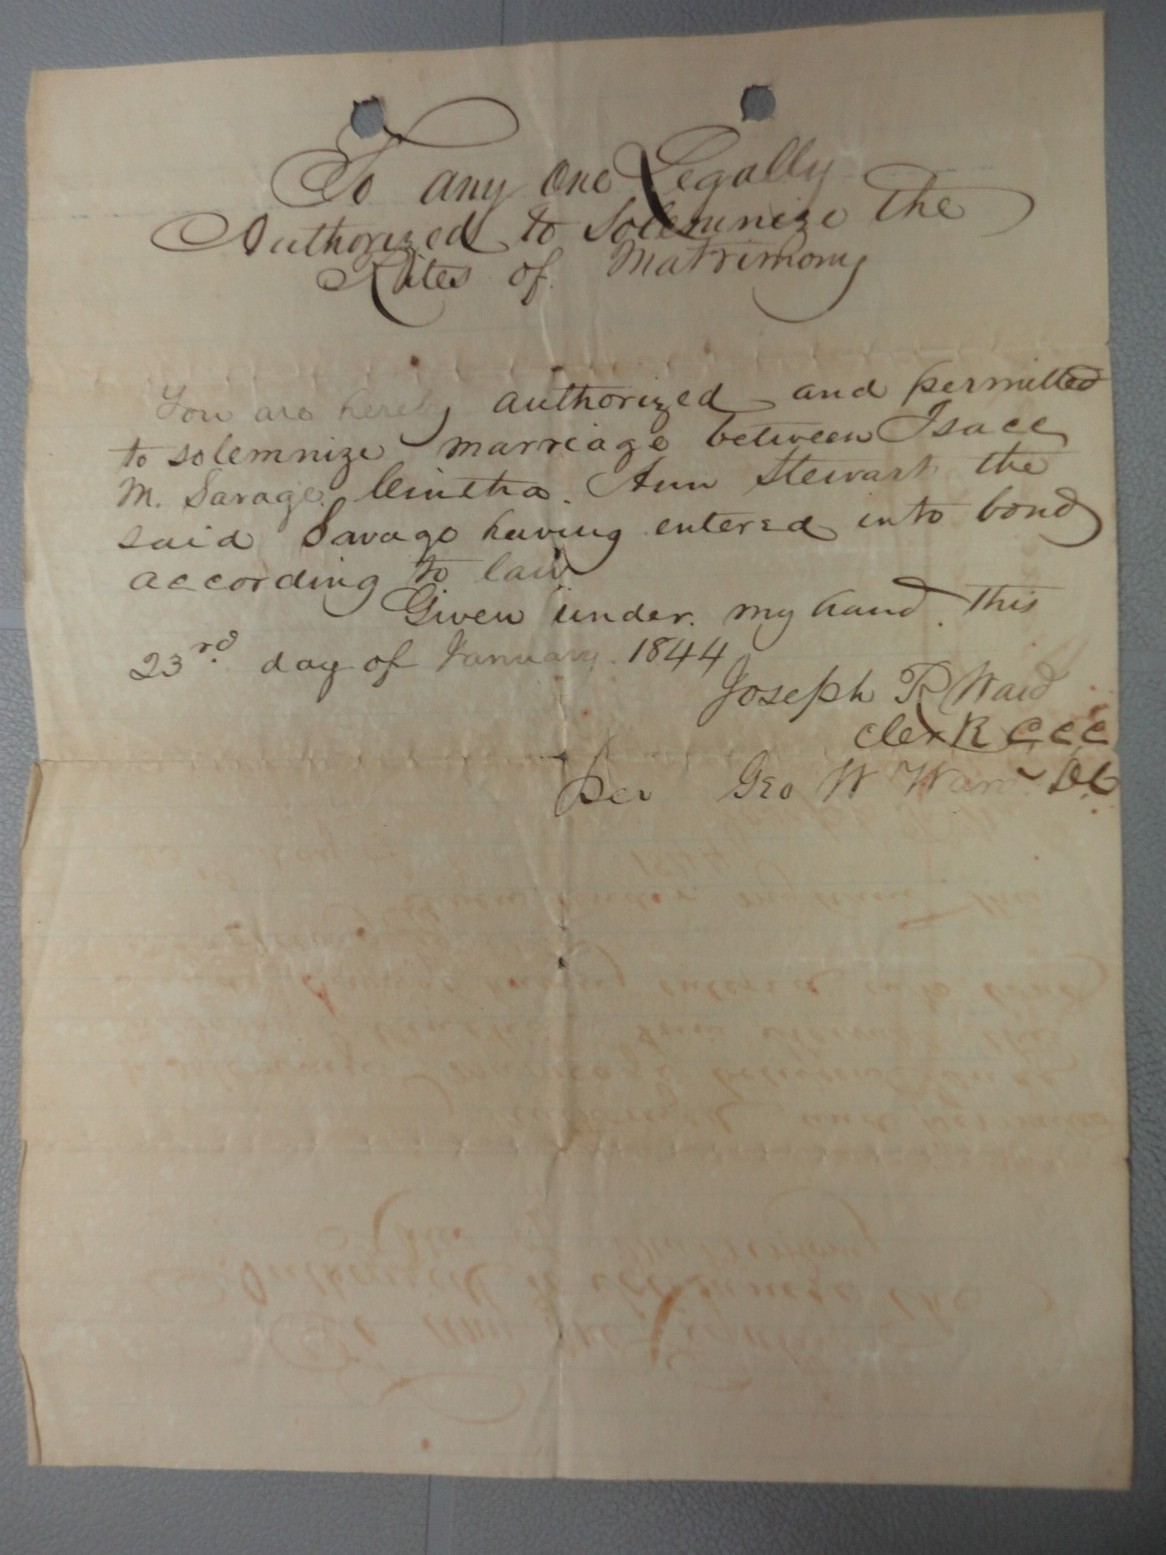 To any one Legally
Authorized to Solemnize The
Rites of Matrimony
You are hereby authorized and permitted
to solemnize marriage between Isace
M. Savage Cintha. Ann Stewart the
said Savage having entered into bond
according to law
Given under my hand this
23rd. day of January 1844
Joseph R Ward
Clerk CCC
Per Geo W Ward DC